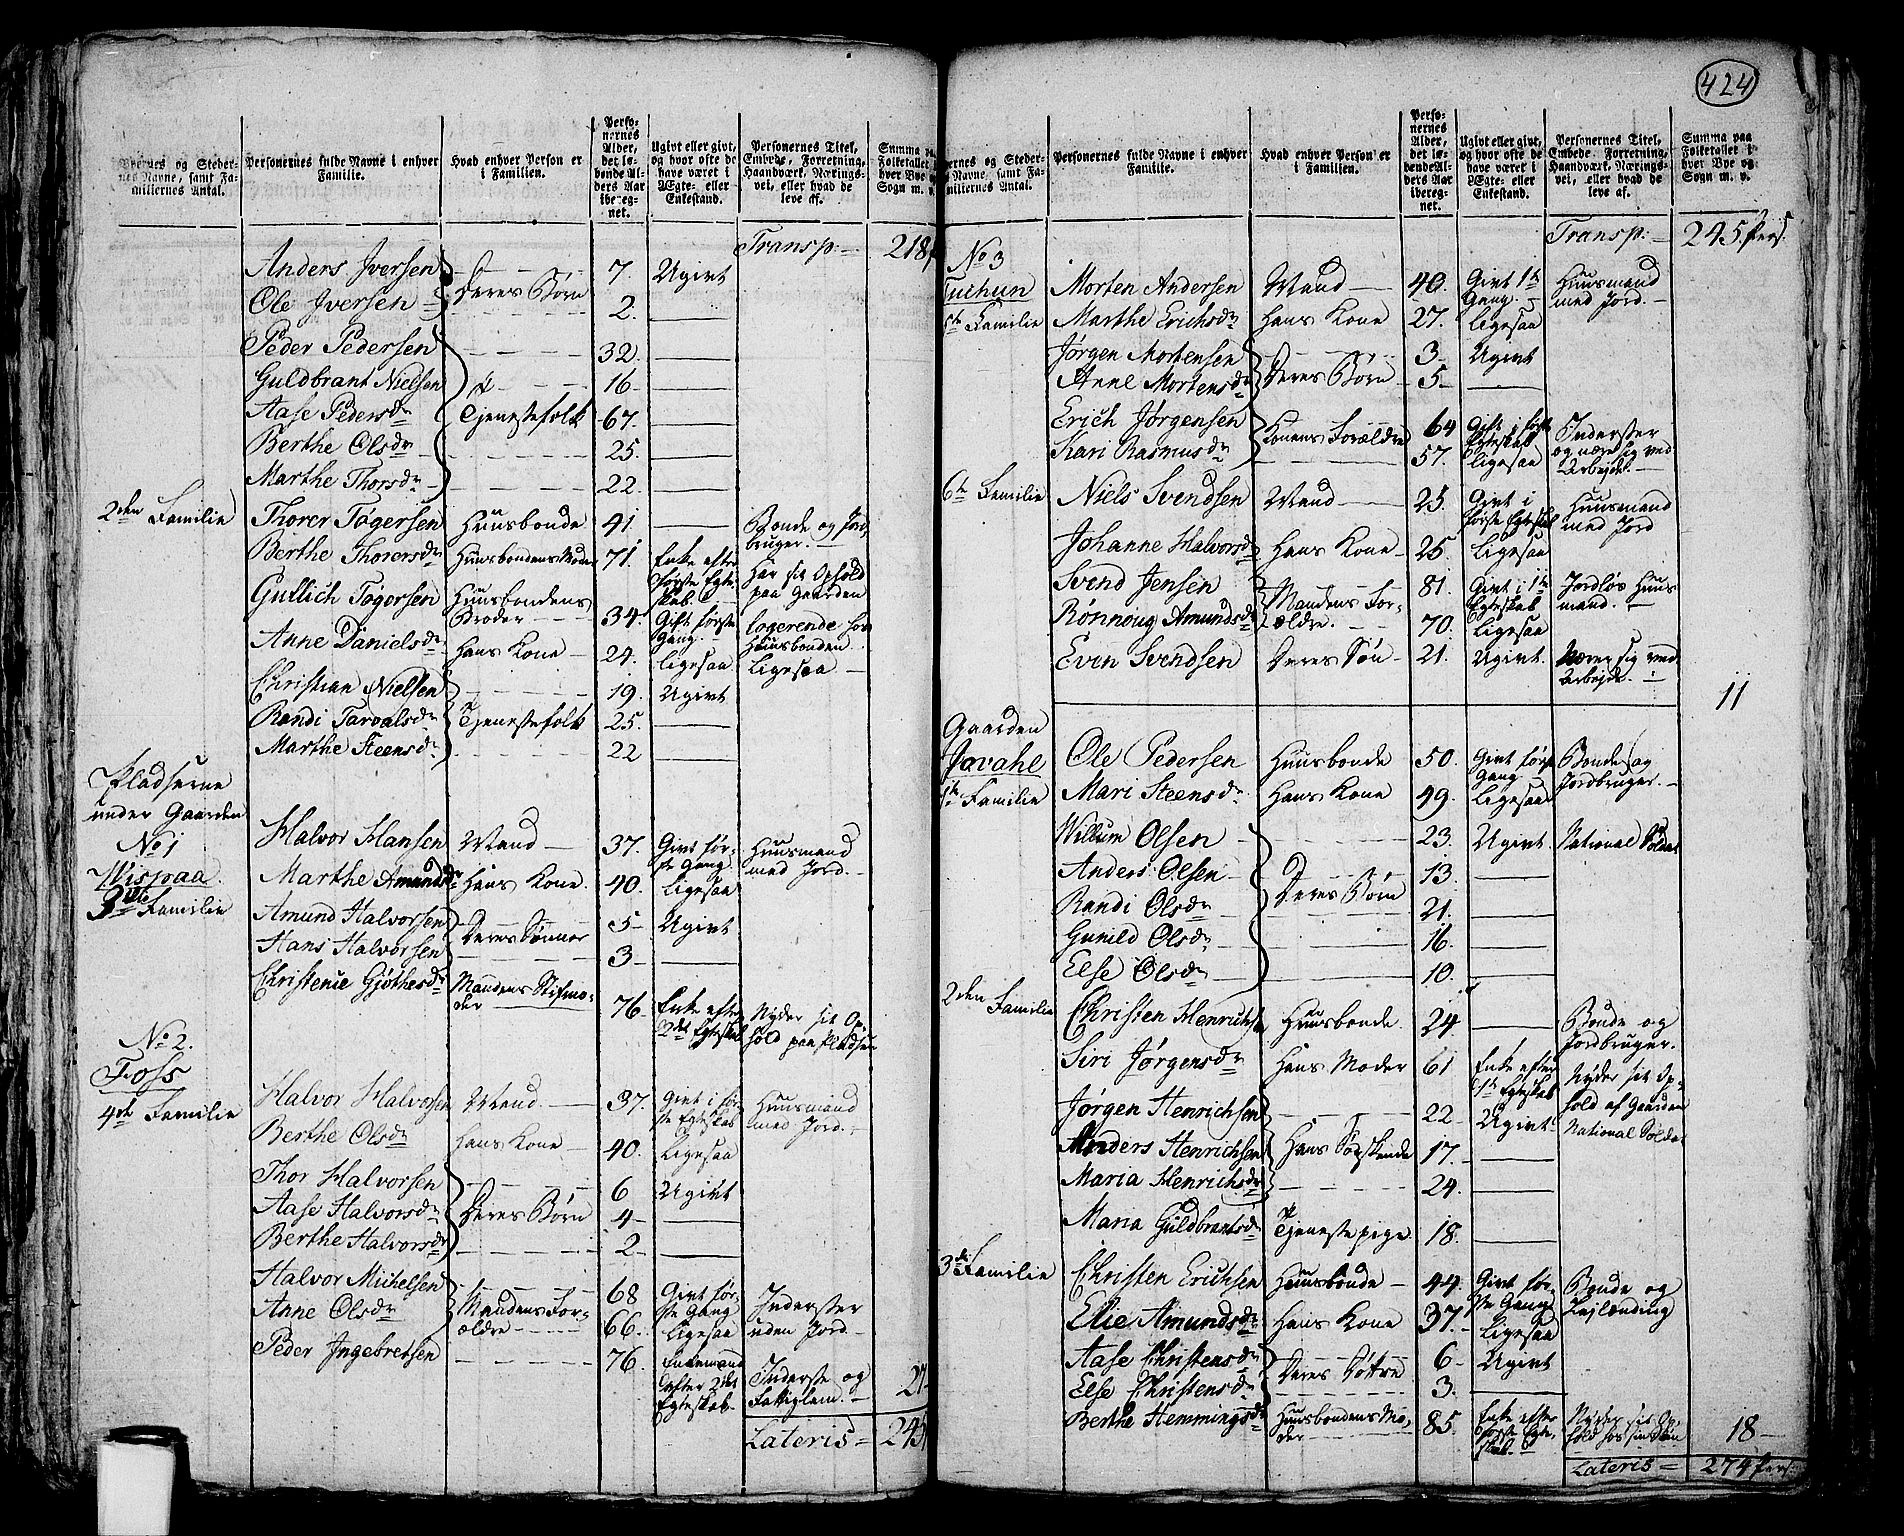 424
Byernes og Steder-
nes Navne, samt Fa-
miliernes Antal.
Personernes fulde Navne i enhver
Familie.
Hvad enhver Person er
i Familien.
Perso-
nernes
Alder,
det lø-
bende Al-
ders Aar
ibereg-
net.
Ugivt eller givt,
og hvor ofte de
have været i
Ægte- eller
Enkestand.
Personernes Titel,
Embede, Forretning,
Haandværk, Nærings-
vei, eller hvad de
leve af.
Summa paa
Folketallet i
hver Bye og
Sogn m. v.
Transp: 218
Anders Iversen 7. Ugivt
Ole Iversen Deres Børn 2.
Peder Pedersen 32.
Guldbrant Nielsen 16
Aase Pedersdr Tjenestefolk 67.
Berthe Olsdr 25
Marthe Thorsdr 22
2den Familie Thorer Tøgersen Huusbonde 41. Bonde og Jord-
bruger.
Berthe Thorersdr Huusbondens Moder 71. Enke efter
første Ægte-
skab. har sit Ophold
paa Gaarden
Gullich Tøgersen Huusbondens
Broder 34. Gift første
Gang. logerende hos
Huusbonden
Anne Danielsdr Hans Kone 24. Ligesaa Ligesaa
Christian Nielsen 19. Ugivt
Randi Tarvalsdr Tjenestefolk 25
Marthe Steensdr 22
Pladserne
under Gaarden
No 1
Wispaa
3die Familie
Halvor Hansen Mand 37. Givt før-
ste Gang Huusmand
med Jord.
Marthe Amundsdr Hans Kone 40. Ligesaa
Amund Halvorsen 5 Ugivt
Hans Halvorsen Deres Sønner 3
Christenie Gjøthesdr Mandens Stifmo-
der 76 Enke efter
2det Egteskab Nyder sit Op-
hold paa Pladsen
No 2.
Foss
4de Familie
Halvor Halvorsen Mand 37. Givt i før-
ste Egteskab Huusmand
med Jord.
Berthe Olsdr Hans Kone 40. Ligesaa
Thor Halvorsen 6 Ugivt
Aase Halvorsdr Deres Børn 4
Berthe Halvorsdr 2
Halvor Michelsen 68 Givt før-
ste Gang Inderster
uden Jord
Anne Olsdr Mandens For-
ældre 66. Ligesaa
Peder Ingebretsen 76. Enkemand
efter 2det
Egteskab. Inderste og
Fattiglem. 27
Lateris 245
Byernes og Steder-
nes Navne, samt Fa-
miliernes Antal.
Personernes fulde Navne i enhver
Familie.
Hvad enhver Person er
i Familien.
Perso-
nernes
Alder,
det lø-
bende Al-
ders Aar
ibereg-
net.
Ugivt eller givt,
og hvor ofte de
have været i
Ægte- eller
Enkestand.
Personernes Titel,
Embede, Forretning,
Haandværk, Nærings-
vei, eller hvad de
leve af.
Summa paa
Folketallet i
hver Bye og
Sogn m. v.
Transp: 245 pers:
No 3
5te Familie
Morten Andersen Mand 40. Givt 1te
Gang. Huusmand
med Jord.
Marthe Erichsdr Hans Kone 27. Ligesaa
Jørgen Mortensen 3 Ugivt
Anne Mortensdr Deres Børn 5
Erich Jørgensen Konens Forældre 64 Gift i første
Egteskab Inderster
og nære sig ved
Arbejde.
Kari Rasmusdr 57. Ligesaa
6te Familie Niels Svendsen Mand 25. Givt i
første Egteskab Huusmand
med Jord
Johanne Halvorsdr Hans Kone 25. Ligesaa
Svend Jensen 81. Givt i 1te
Egteskab Jordløs Huus-
mand.
Rønnoug Amundsdr Mandens For-
ældre. 70. Ligesaa
Even Svendsen Deres Søn 21. Ugivt. Nærer sig ved
Arbejde. 11
Gaarden
Jovahl
1te Familie
Ole Pedersen Huusbonde 50. Givt første
Gang Bonde og
Jordbruger.
Mari Steensdr Hans Kone 49. Ligesaa
Willum Olsen 23. Ugivt. National Soldat
Anders Olsen 13.
Randi Olsdr Deres Børn 21.
Gunild Olsdr 16.
Else Olsdr 10.
2den Familie Christen Henrichs Huusbonde 24 Bonde og
Jordbruger.
Siri Jørgensdr Hans Moder 61 Enke efter
1te Egteskab Nyder sit Op-
hold af Gaarden
Jørgen Henrichsen 22 Ugivt National Soldat
Anders Henrichsen Hans Søskende 17.
Maria Henrichsdr 24.
Maria Guldbrantsdr Tjenestepige 18.
3die Familie Christen Erichsen Huusbonde 44. Givt før-
ste Gang Bonde og
Lejlænding
Elie Amundsdr Hans Kone 37. Ligesaa
Aase Christensdr 6 Ugivt
Else Christensdr Deres Døtre 3.
Berthe Hemmingsdr Huusbondens Mo-
der 85. Enke efter
første Egte-
skab Nyder sit Op-
hold hos sin Søn 18
Lateris 274 pers: